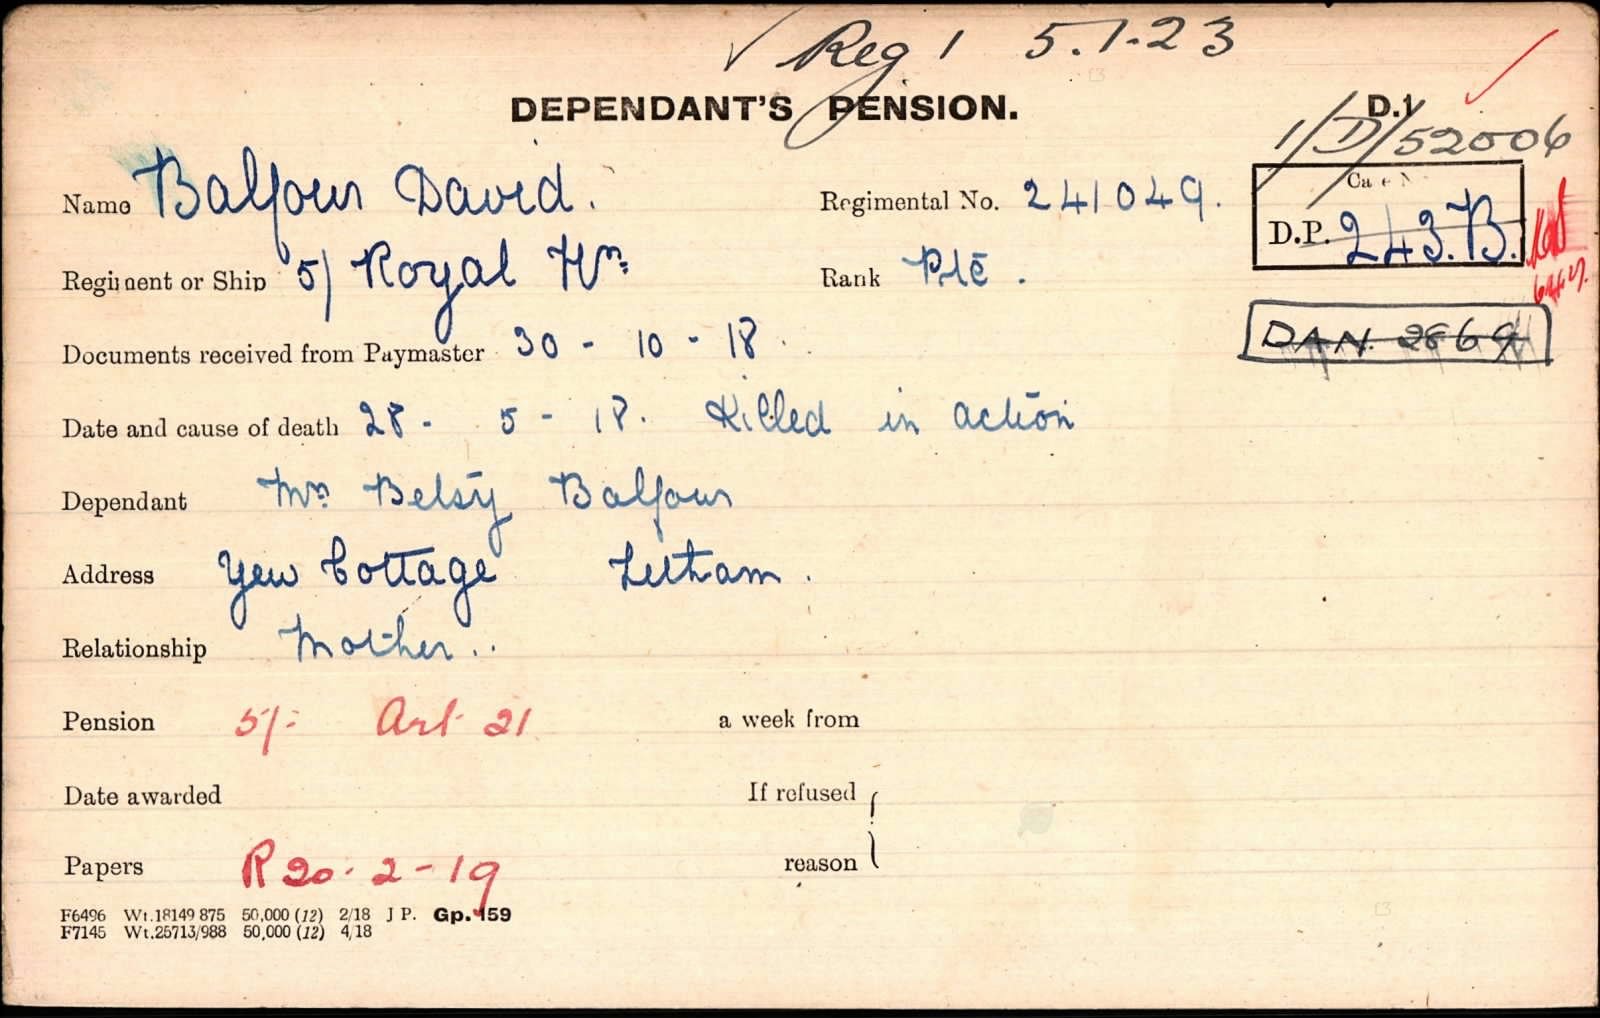 ✓ Reg 1 5.1.23
DEPENDANT'S PENSION. D.1
1/D/52006
Name Balfour David. Regimental No. 241049.
Case N
D.P. 243.B.
Regiment or Ship 5/ Royal Hrs Rank Pte.
Documents received from Paymaster 30 - 10 - 18.
DAN. 2869
Date and cause of death 28 - 5 - 18. Killed in action
Dependant Mrs Betsy Balfour
Address Yew Cottage Letham.
Relationship Mother..
Pension 5/- Art 21 a week from
Date awarded If refused
Papers R 20.2-19 reason
F6496 Wt.18149 875 50,000 (12) 2/18 J P. Gp. 159
F7145 Wt.25713/988 50,000 (12) 4/18